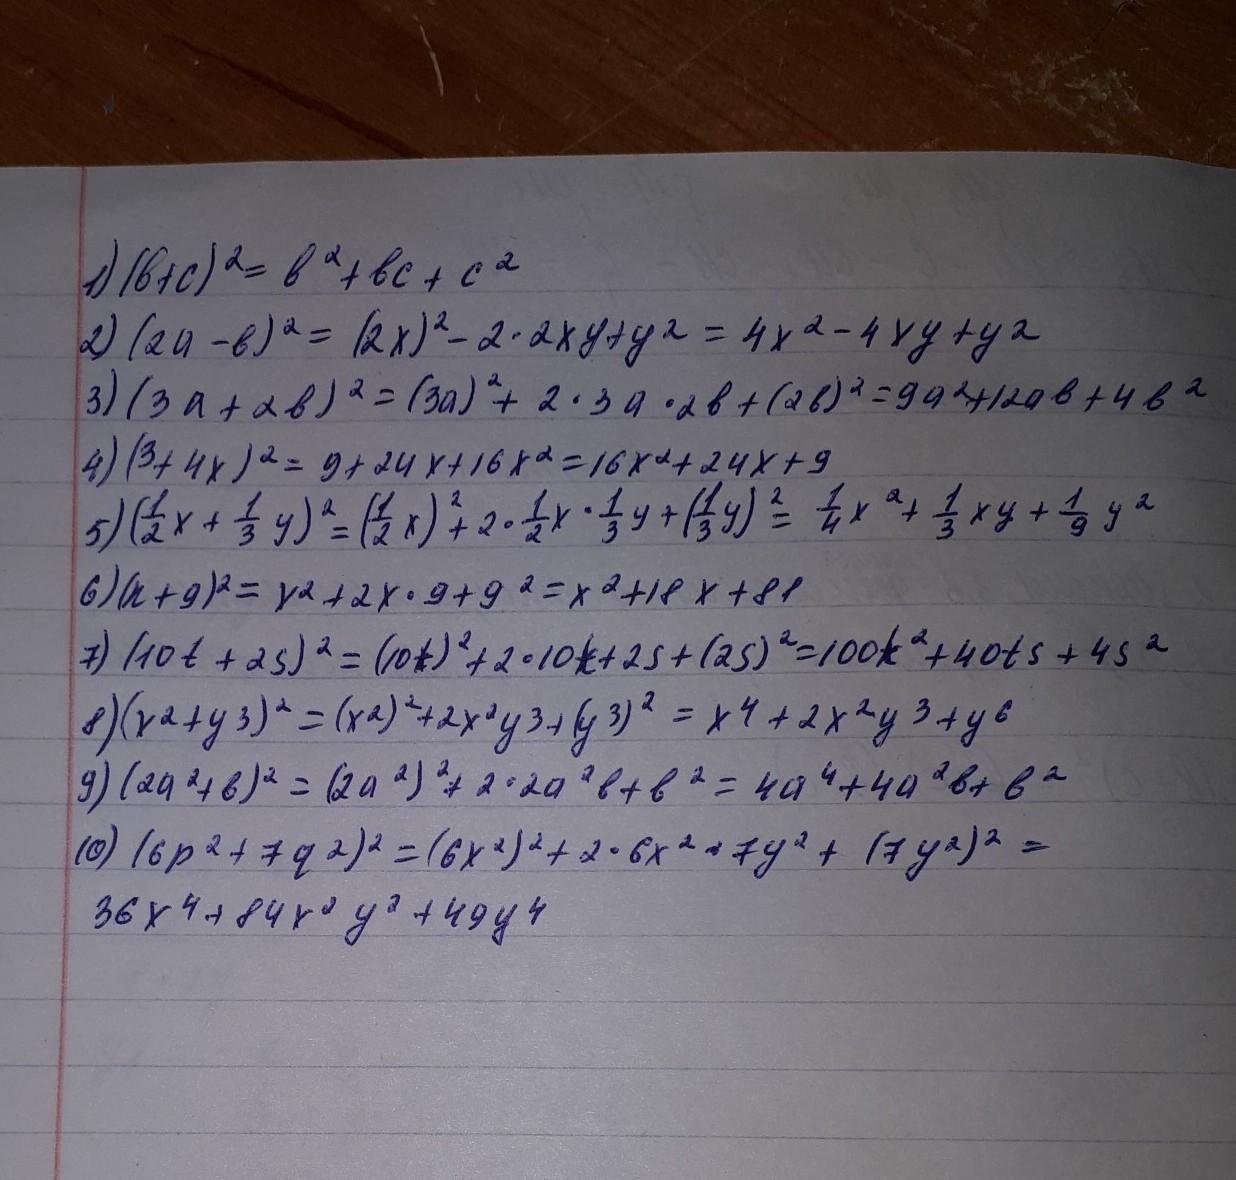 1) (b+c)² = b² + bc + c²
2) (2a - b)² = (2x)² - 2·2xy + y² = 4x² - 4xy + y²
3) (3a + 2b)² = (3a)² + 2·3a·2b + (2b)² = 9a² + 12ab + 4b²
4) (3 + 4x)² = 9 + 24x + 16x² = 16x² + 24x + 9
5) (1/2x + 1/3y)² = (1/2x)² + 2·1/2x·1/3y + (1/3y)² = 1/4x² + 1/3xy + 1/9y²
6) (x + 9)² = x² + 2x·9 + 9² = x² + 18x + 81
7) (10t + 2s)² = (10t)² + 2·10t + 2s + (2s)² = 100t² + 40ts + 4s²
8) (x² + y³)² = (x²)² + 2x²y³ + (y³)² = x⁴ + 2x²y³ + y⁶
9) (2a² + b)² = (2a²)² + 2·2a²b + b² = 4a⁴ + 4a²b + b²
10) (6p² + 7q²)² = (6x²)² + 2·6x²·7y² + (7y²)² =
36x⁴ + 84x²y² + 49y⁴